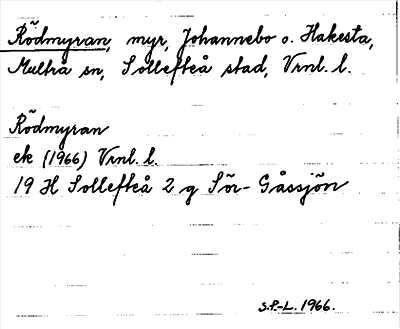 Rödmyran, myr, Johannebo o. Hakesta,
Multrå sn, Sollefteå stad, Vrnl. l.
Rödmyran
ek (1966) Vrnl. l.
19 H Sollefteå 2 g Sör-Gåssjön
S.P.-L. 1966.